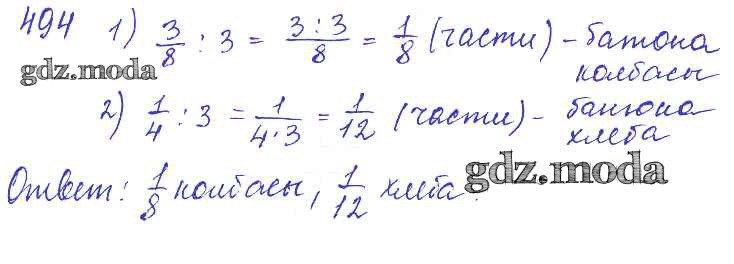 494 1) 3/8 : 3 = 3:3/8 = 1/8 (части) - батона
gdz.moda колбасы
2) 1/4 : 3 = 1/4·3 = 1/12 (части) - батона
хлеба
Ответ: 1/8 колбасы, 1/12 хлеба.
gdz.moda